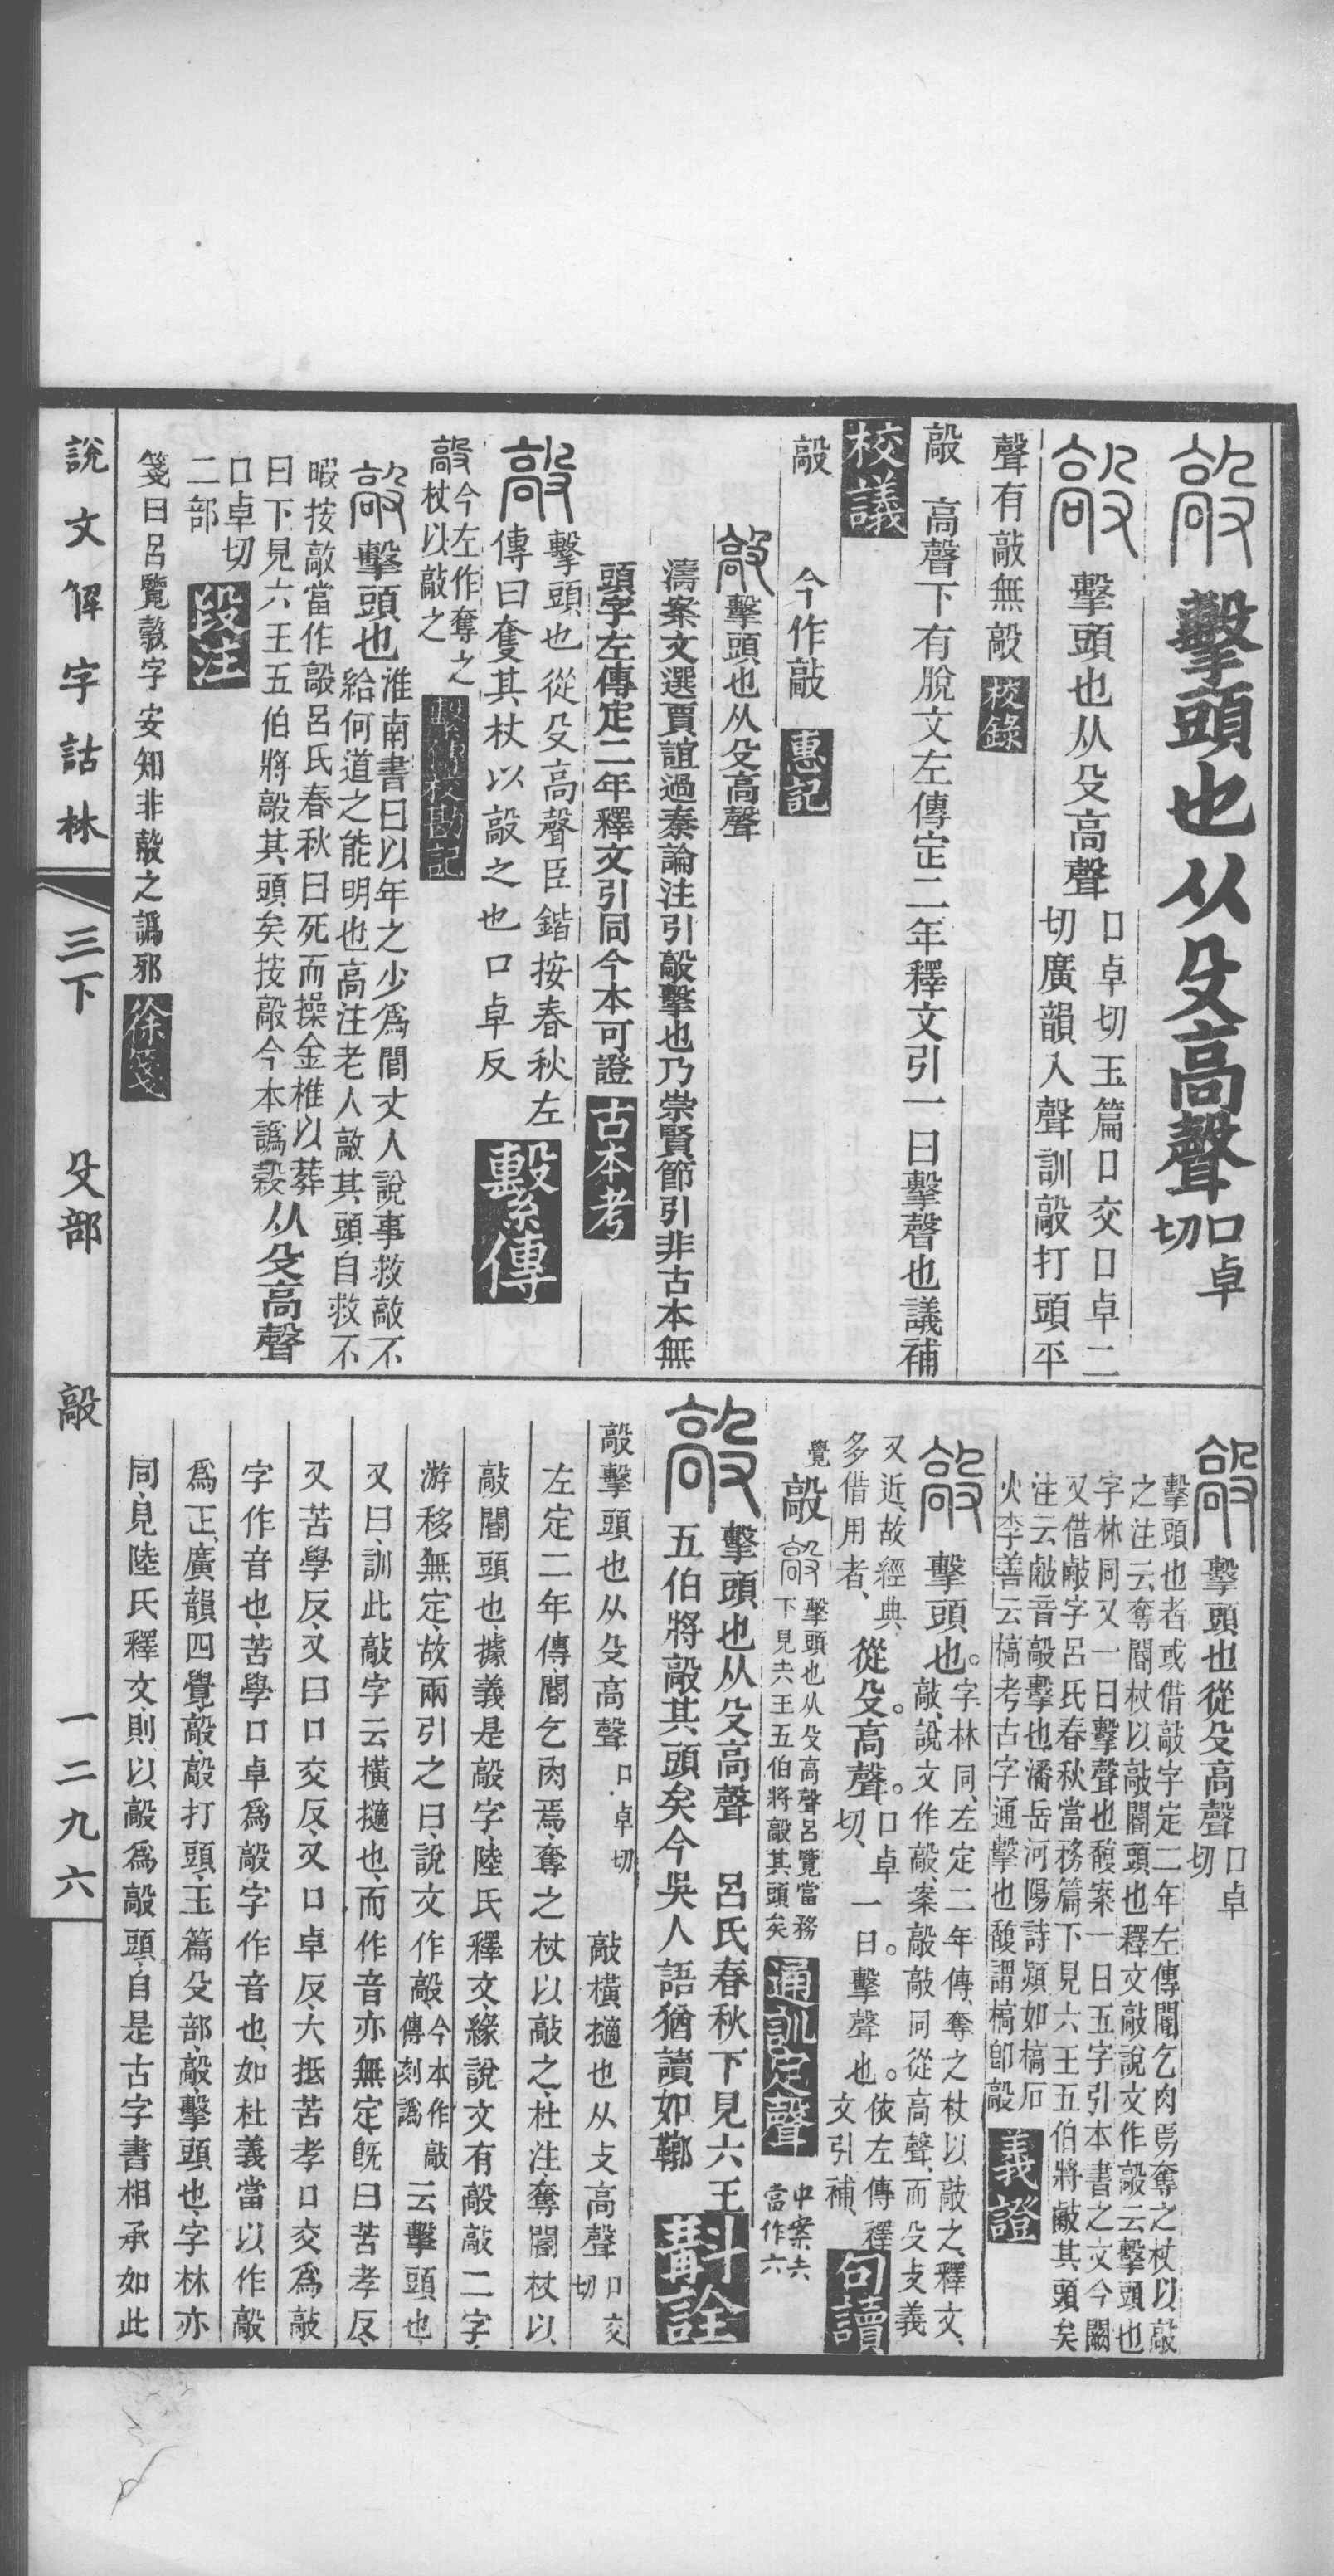 㲉擊頭也从殳高聲口卓切
擊頭也从殳高聲口卓切玉篇口交口卓二切廣韻入聲訓毃打頭平
聲有敲無毃校錄
毃 高聲下有脫文左傳定二年釋文引一曰擊聲也議補
校議
毃 今作敲 惠記
毃擊頭也从殳高聲
濤案文選賈誼過秦論注引毃擊也乃崇賢節引非古本無
頭字左傳定二年釋文引同今本可證 古本考
毃擊頭也從殳高聲臣鍇按春秋左傳曰奪其杖以毃之也口卓反 繫傳
毃今左作奪之杖以敲之 繫傳校勘記
毃擊頭也淮南書曰以年之少爲閭丈人說事救敲不給何道之能明也高注老人敲其頭自救不
暇按敲當作毃呂氏春秋曰死而操金椎以葬曰下見六王五伯將毃其頭矣按毃今本譌穀从殳高聲
口卓切二部 段注
箋曰呂覽㲉字安知非㱿之譌邪 徐箋
毃擊頭也從殳高聲口卓切
擊頭也者或借敲字定二年左傳閽乞肉焉奪之杖以敲
之注云奪閽杖以敲閽頭也釋文敲說文作毃云擊頭也
字林同又一曰擊聲也馥案一曰五字引本書之文今闕
又借㪣字呂氏春秋當務篇下見六王五伯將㪣其頭矣
注云㪣音毃擊也潘岳河陽詩熲如槁石
火李善云槁考古字通擊也馥謂槁卽毃 義證
毃擊頭也。字林同、左定二年傳、奪之杖以敲之、釋文、敲、說文作毃、案毃敲同從高聲、而殳攴義
又近、故經典、多借用者、從殳。高聲。口卓切、一曰擊聲也。依左傳釋文引補、 句讀
覺毃毃擊頭也从殳高聲呂覽當務下見六王五伯將毃其頭矣 通訓定聲 中案六當作六
毃擊頭也从殳高聲 呂氏春秋下見六王
五伯將毃其頭矣今吳人語猶讀如鞹 斠詮
毃擊頭也从殳高聲口卓切 敲橫擿也从攴高聲口交切
左定二年傳、閽乞肉焉、奪之杖以敲之、杜注、奪閽杖以
敲閽頭也、據義是毃字、陸氏釋文、緣說文有毃敲二字、
游移無定、故兩引之曰、說文作毃、今本作敲傳刻譌云擊頭也
又曰、訓此敲字云橫擿也、而作音亦無定、旣曰苦孝反、
又苦學反、又曰口交反、又口卓反、大抵苦孝口交爲敲
字作音也、苦學口卓爲毃字作音也、如杜義當以作毃
爲正、廣韻四覺、毃、毃打頭、玉篇殳部、毃、擊頭也、字林亦
同、見陸氏釋文、則以毃爲毃頭、自是古字書相承如此
說文解字詁林 三下 殳部 毃 一二九六